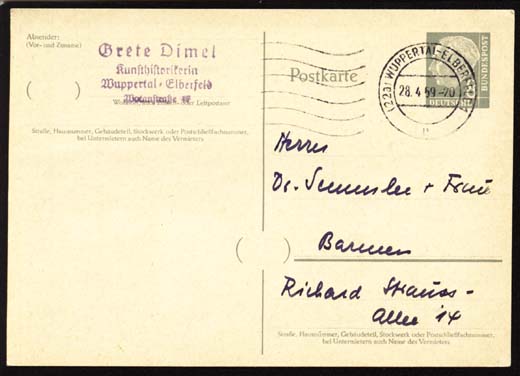 Absender:
(Vor- und Zuname)
Grete Dimel
Kunsthistorikerin
Wuppertal-Elberfeld
Wotanstraße
Straße, Hausnummer, Gebäudeteil, Stockwerk oder Postschließfachnummer,
bei Untermietern auch Name des Vermieters
Postkarte
(22a) WUPPERTAL-ELBERFELD
28.4.59-20
DEUTSCHE
BUNDESPOST
Herrn
Dr. Semmler + Frau
Barmen
Richard Strauss-
Allee 14
Straße, Hausnummer, Gebäudeteil, Stockwerk oder Postschließfachnummer,
bei Untermietern auch Name des Vermieters